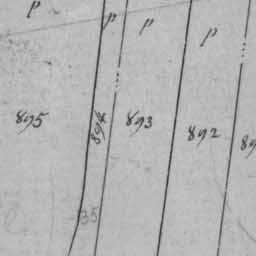 p p p p
895 894 893 892 89
35